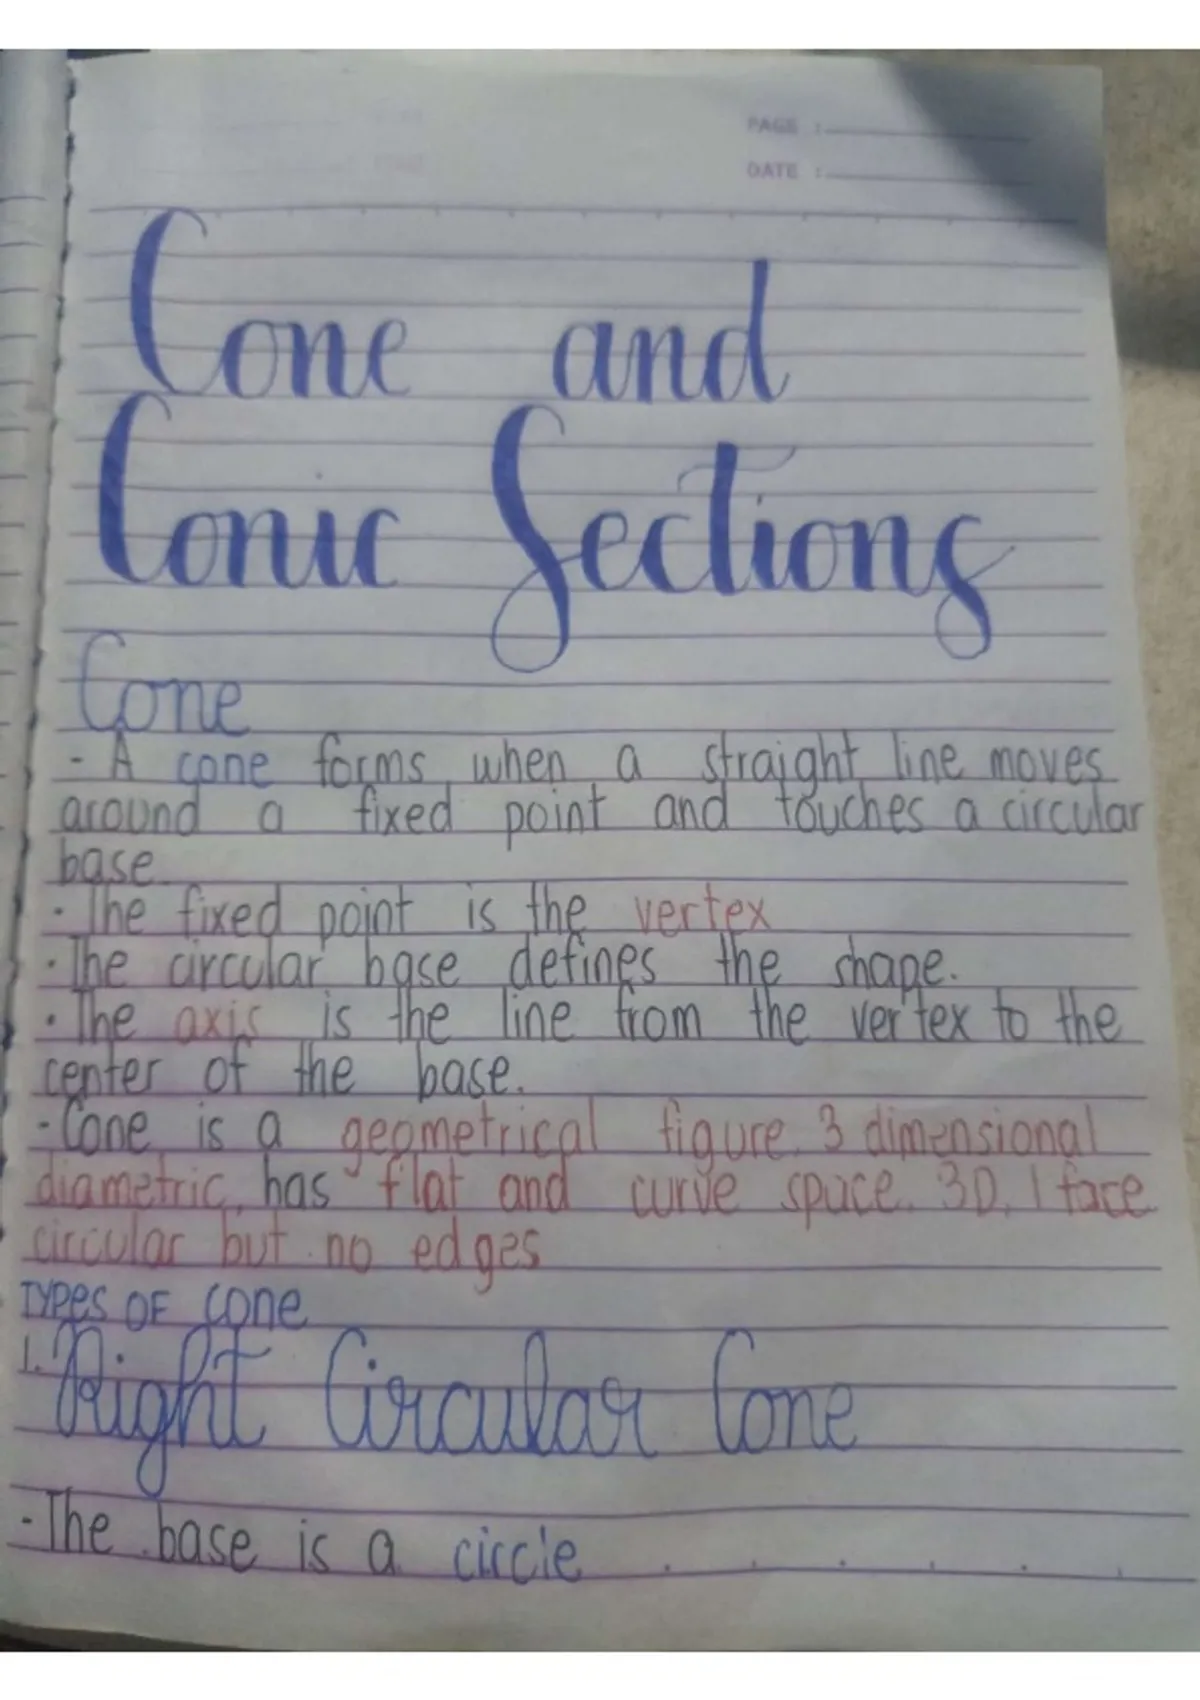 PAGE :
DATE :
Cone and
Conic Sections
Cone
- A cone forms when a straight line moves
around a fixed point and touches a circular
base.
· The fixed point is the vertex
· The circular base defines the shape.
· The axis is the line from the vertex to the
center of the base.
- Cone is a geometrical figure. 3 dimensional
diametric, has flat and curve space. 3D, 1 face
circular but no edges
TYPES OF cone
1. Right Circular Cone
- The base is a circle